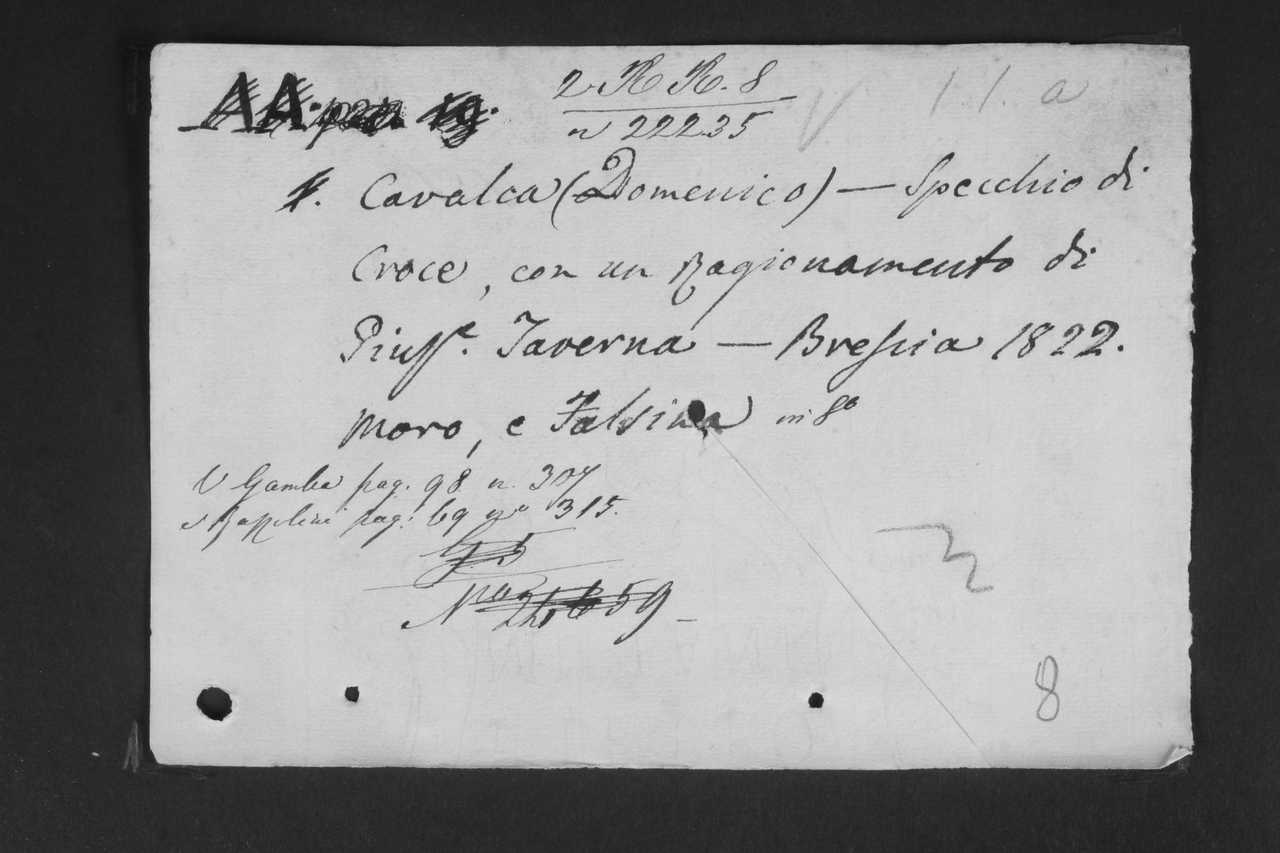 AA.
2 R R. 8
n 22235
11. a
Cavalca (Domenico) — Specchio di
Croce, con un Ragionamento di
Giuspe. Taverna — Brescia 1822.
Moro, e Falsina in 8o
V Gamba pag. 98 n. 307
pag. 69 no 315.
59
8